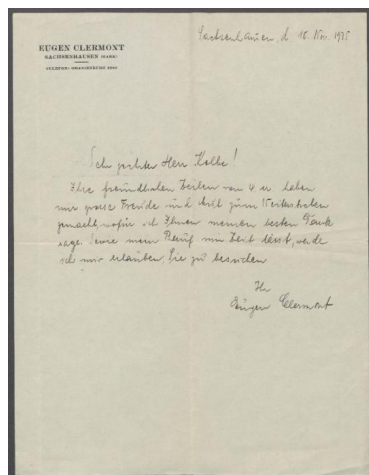 EUGEN CLERMONT
SACHSENHAUSEN (MARK)
Sachsenhausen, d 16. Nov. 1935
Sehr geehrter Herr Kolbe!
Ihre freundlichen Zeilen vom 4. er. haben
mir grosse Freude und Lust zum Weiterstreben
gemacht, wofür ich Ihnen meinen besten Dank
sage. Sowie mein Beruf mir Zeit lässt, werde
ich mir erlauben, Sie zu besuchen
Ihr
Eugen Clermont